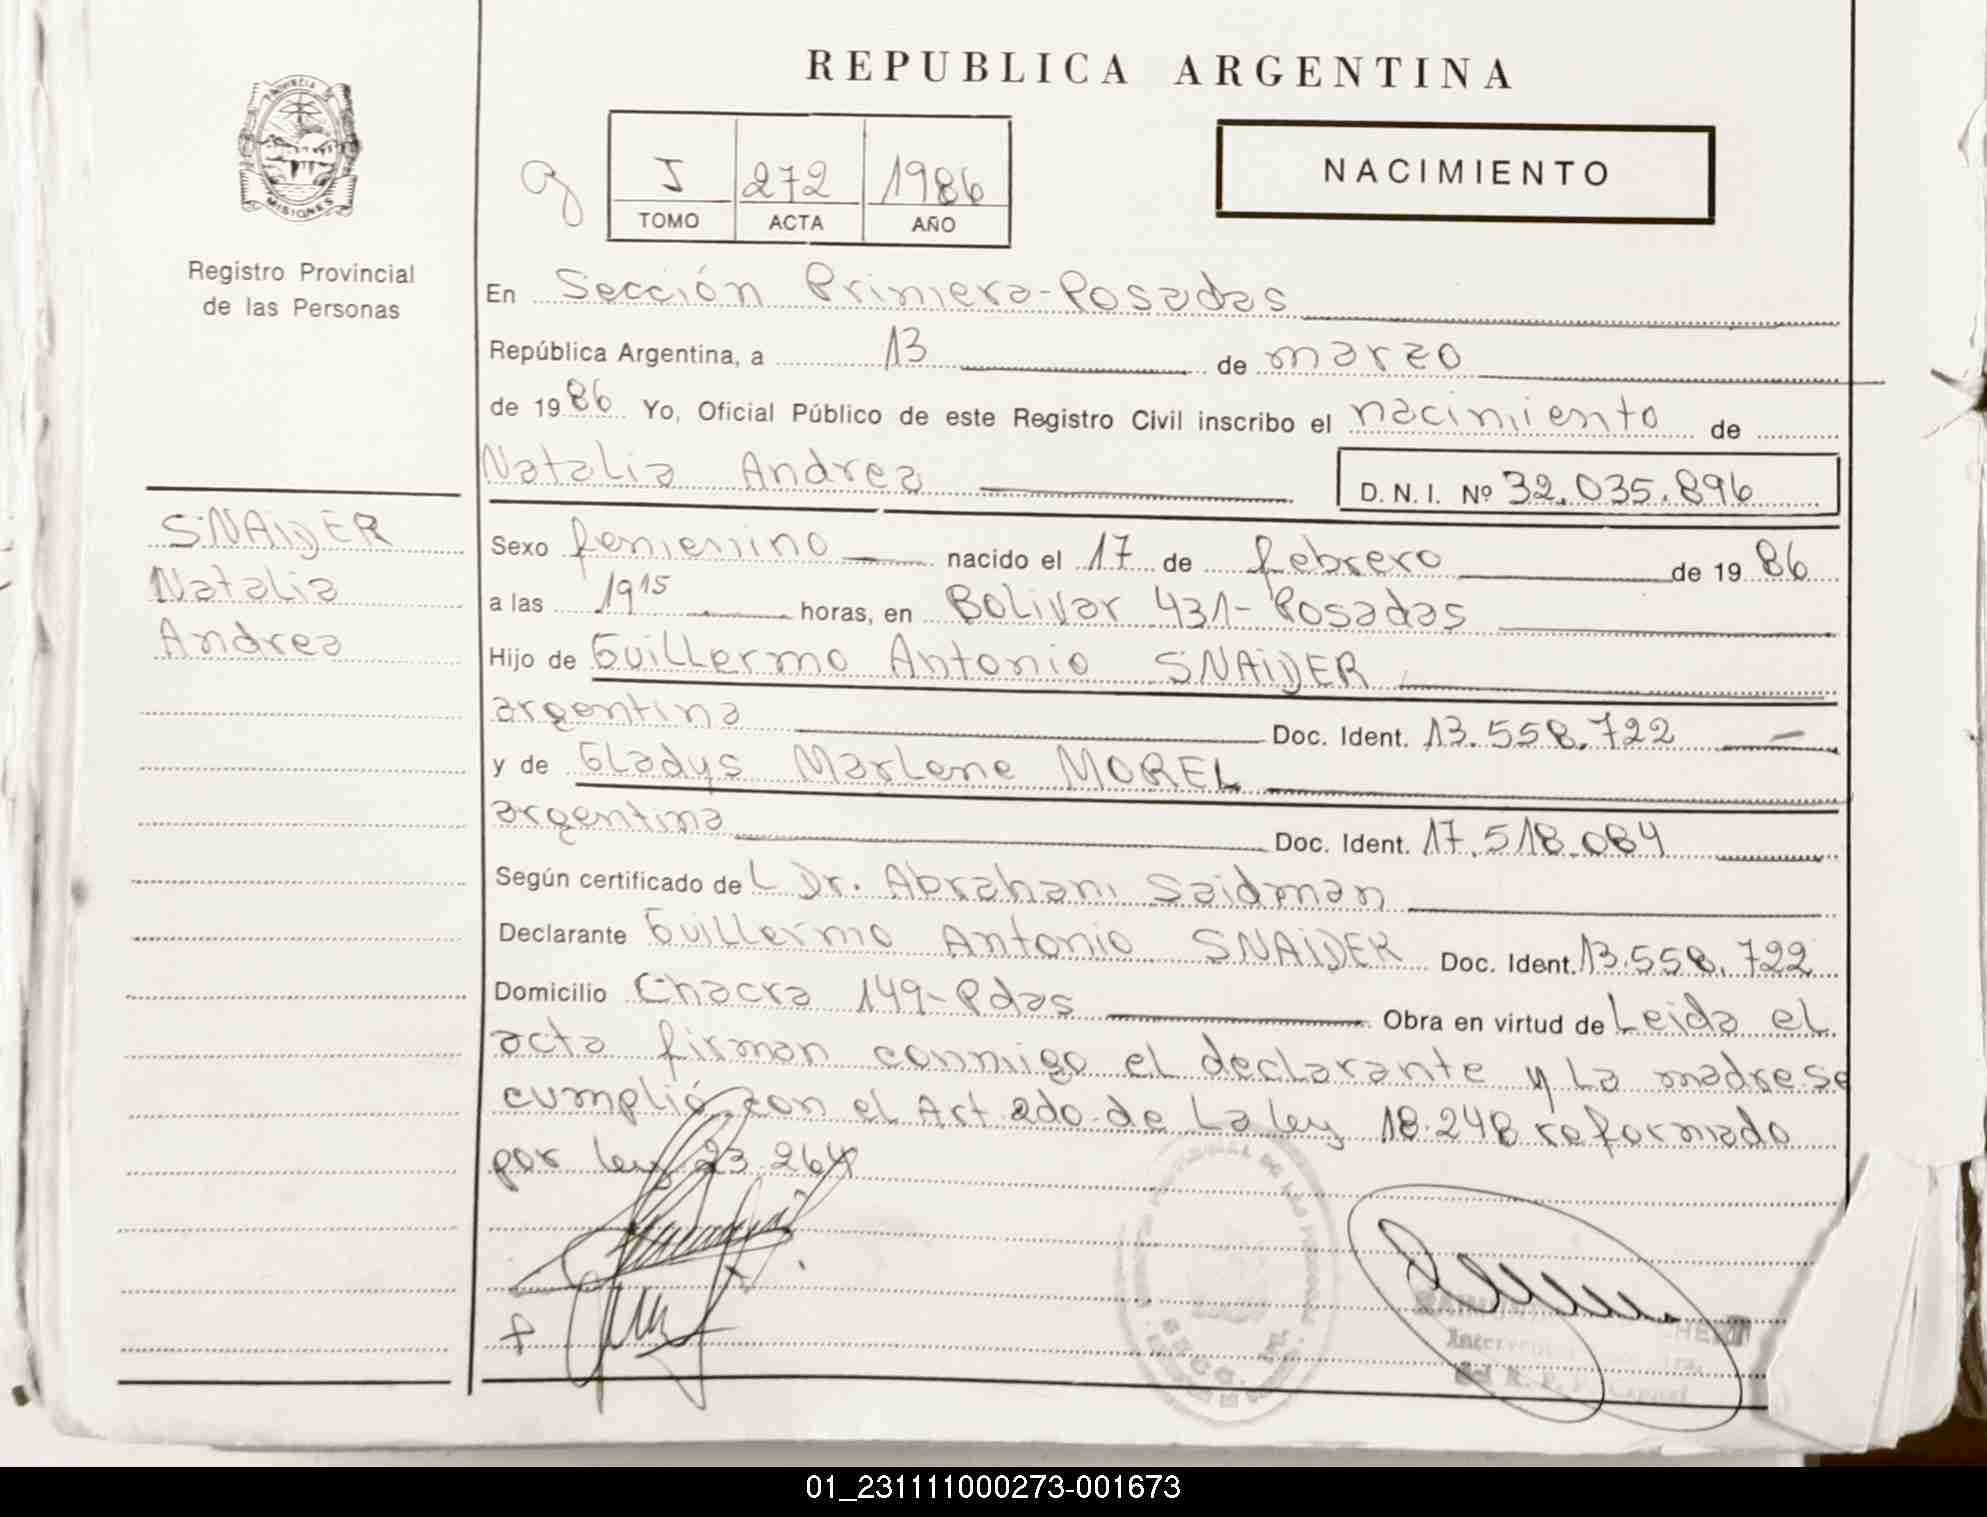 REPUBLICA ARGENTINA
PROVINCIA DE
MISIONES
Registro Provincial
de las Personas
J 272 1986
TOMO ACTA AÑO
NACIMIENTO
En Sección Primera-Posadas
República Argentina, a 13 de marzo
de 1986 Yo, Oficial Público de este Registro Civil inscribo el nacimiento de
Natalia Andrea
D.N.I. Nº 32.035.896
SNAIDER
Natalia
Andrea
Sexo femenino nacido el 17 de febrero de 1986
a las 19 15 horas, en Bolivar 431- Posadas
Hijo de Guillermo Antonio SNAIDER
argentina Doc. Ident. 13.558.722 —
y de Gladys Marlene MOREL
argentina Doc. Ident. 17.518.084
Según certificado de L Dr. Abraham Saidman
Declarante Guillermo Antonio SNAIDER Doc. Ident. 13.558.722
Domicilio Chacra 149-Pdas Obra en virtud de Leida el
acta firman conmigo el declarante y La madre se
cumplió con el Art 2do de La ley 18.248 reformado
por ley 23.264
01_231111000273-001673